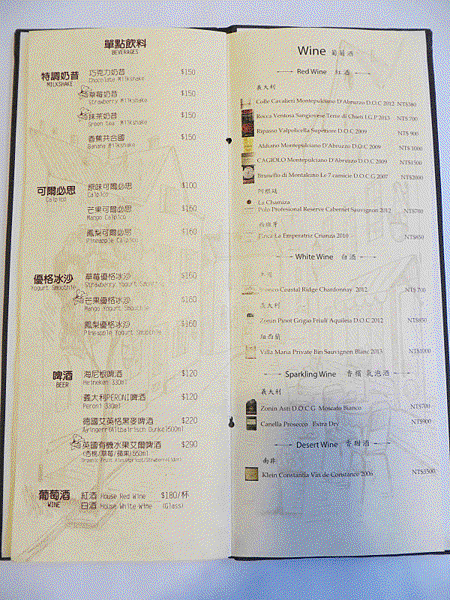 單點飲料
BEVERAGES
特調奶昔
MILKSHAKE
巧克力奶昔 $150
Chocolate Milkshake
草莓奶昔 $150
Strawberry Milkshake
抹茶奶昔 $150
Green tea Milkshake
香蕉共合國 $150
Banana Milkshake
可爾必思
Calpico
原味可爾必思 $100
Calpico
芒果可爾必思 $160
Mango Calpico
鳳梨可爾必思 $160
Pineapple Calpico
優格冰沙
Yogurt Smoothie
草莓優格冰沙 $160
Strawberry Yogurt Smoothie
芒果優格冰沙 $160
Mango Yogurt Smoothie
鳳梨優格冰沙 $160
Pineapple Yogurt Smoothie
啤酒
BEER
海尼根啤酒 $120
Heineken 330ml
義大利PERONI啤酒 $120
Peroni 330ml
德國艾英格黑麥啤酒 $220
Ayinger Altbairisch Dunkel(500ml)
英國有機水果艾爾啤酒 $290
葡萄酒
WINE
紅酒 House Red Wine $180/杯
白酒 House White Wine (Glass)
Wine 葡萄酒
Red Wine 紅酒
義大利
Colle Cavalieri Montepulciano D'Abruzzo D.O.C 2012 NT$580
Rocca Ventosa Sangiovese Terre di Chieti I.G.P 2013 NT$700
Ripasso Valpolicella Superiore D.O.C 2009 NT$ 900
Montepulciano D'Abruzzo D.O.C 2009 NT$ 1000
CAGIOLO Montepulciano D'Abruzzo D.O.C 2009 NT$1500
Brunello di Montalcino D.O.C.G 2007 NT$2000
阿根廷
La Chamiza
Polo Profesional Reserve Cabernet Sauvignon 2012 NT$780
西班牙
La Emperatriz Crianza 2010 NT$850
White Wine 白酒
Coastal Ridge Chardonnay 2012 NT$ 700
義大利
Zonin Pinot Grigio Friuli Aquileia D.O.C 2012 NT$850
紐西蘭
Villa Maria Private Bin Sauvignon Blanc 2013 NT$1000
Sparkling Wine 香檳 氣泡酒
義大利
Zonin Asti D.O.C.G Moscato Bianco NT$700
Canella Prosecco Extra Dry NT$900
Desert Wine 香甜酒
南非
Klein Constantia Vin de Constance 2006 NT$3500